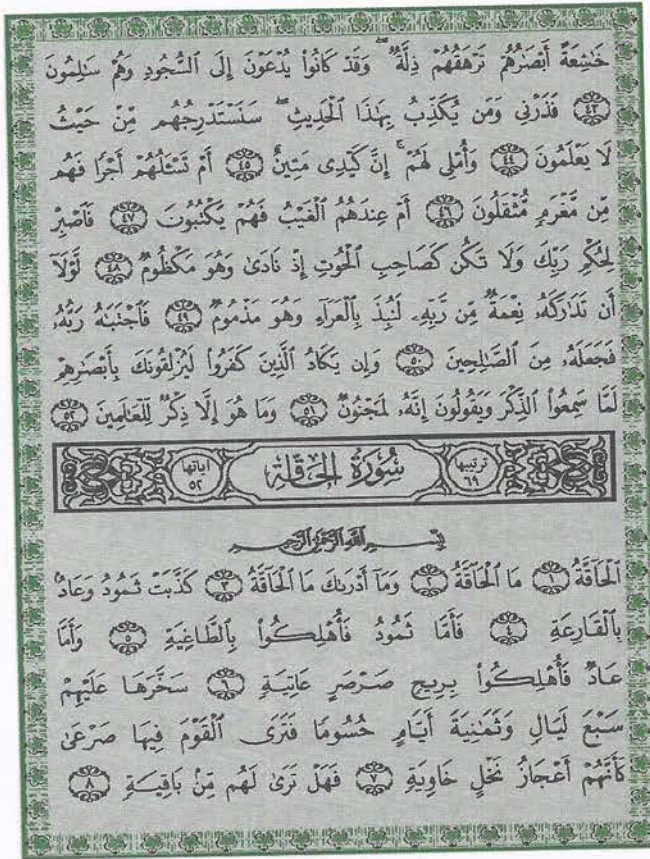 خَٰشِعَةً أَبْصَٰرُهُمْ تَرْهَقُهُمْ ذِلَّةٌ ۖ وَقَدْ كَانُوا۟ يُدْعَوْنَ إِلَى ٱلسُّجُودِ وَهُمْ سَٰلِمُونَ
٤٣ فَذَرْنِى وَمَن يُكَذِّبُ بِهَٰذَا ٱلْحَدِيثِ ۖ سَنَسْتَدْرِجُهُم مِّنْ حَيْثُ
لَا يَعْلَمُونَ ٤٤ وَأُمْلِى لَهُمْ ۚ إِنَّ كَيْدِى مَتِينٌ ٤٥ أَمْ تَسْـَٔلُهُمْ أَجْرًا فَهُم
مِّن مَّغْرَمٍ مُّثْقَلُونَ ٤٦ أَمْ عِندَهُمُ ٱلْغَيْبُ فَهُمْ يَكْتُبُونَ ٤٧ فَٱصْبِرْ
لِحُكْمِ رَبِّكَ وَلَا تَكُن كَصَاحِبِ ٱلْحُوتِ إِذْ نَادَىٰ وَهُوَ مَكْظُومٌ ٤٨ لَّوْلَآ
أَن تَدَٰرَكَهُۥ نِعْمَةٌ مِّن رَّبِّهِۦ لَنُبِذَ بِٱلْعَرَآءِ وَهُوَ مَذْمُومٌ ٤٩ فَٱجْتَبَٰهُ رَبُّهُۥ
فَجَعَلَهُۥ مِنَ ٱلصَّٰلِحِينَ ٥٠ وَإِن يَكَادُ ٱلَّذِينَ كَفَرُوا۟ لَيُزْلِقُونَكَ بِأَبْصَٰرِهِمْ
لَمَّا سَمِعُوا۟ ٱلذِّكْرَ وَيَقُولُونَ إِنَّهُۥ لَمَجْنُونٌ ٥١ وَمَا هُوَ إِلَّا ذِكْرٌ لِّلْعَٰلَمِينَ ٥٢
ترتيبها ٦٩ سُورَةُ الحَاقَّةِ آياتها ٥٢
بِسْمِ ٱللَّهِ ٱلرَّحْمَٰنِ ٱلرَّحِيمِ
ٱلْحَآقَّةُ ١ مَا ٱلْحَآقَّةُ ٢ وَمَآ أَدْرَىٰكَ مَا ٱلْحَآقَّةُ ٣ كَذَّبَتْ ثَمُودُ وَعَادٌۢ
بِٱلْقَارِعَةِ ٤ فَأَمَّا ثَمُودُ فَأُهْلِكُوا۟ بِٱلطَّاغِيَةِ ٥ وَأَمَّا
عَادٌ فَأُهْلِكُوا۟ بِرِيحٍ صَرْصَرٍ عَاتِيَةٍ ٦ سَخَّرَهَا عَلَيْهِمْ
سَبْعَ لَيَالٍ وَثَمَٰنِيَةَ أَيَّامٍ حُسُومًا فَتَرَى ٱلْقَوْمَ فِيهَا صَرْعَىٰ
كَأَنَّهُمْ أَعْجَازُ نَخْلٍ خَاوِيَةٍ ٧ فَهَلْ تَرَىٰ لَهُم مِّنۢ بَاقِيَةٍ ٨